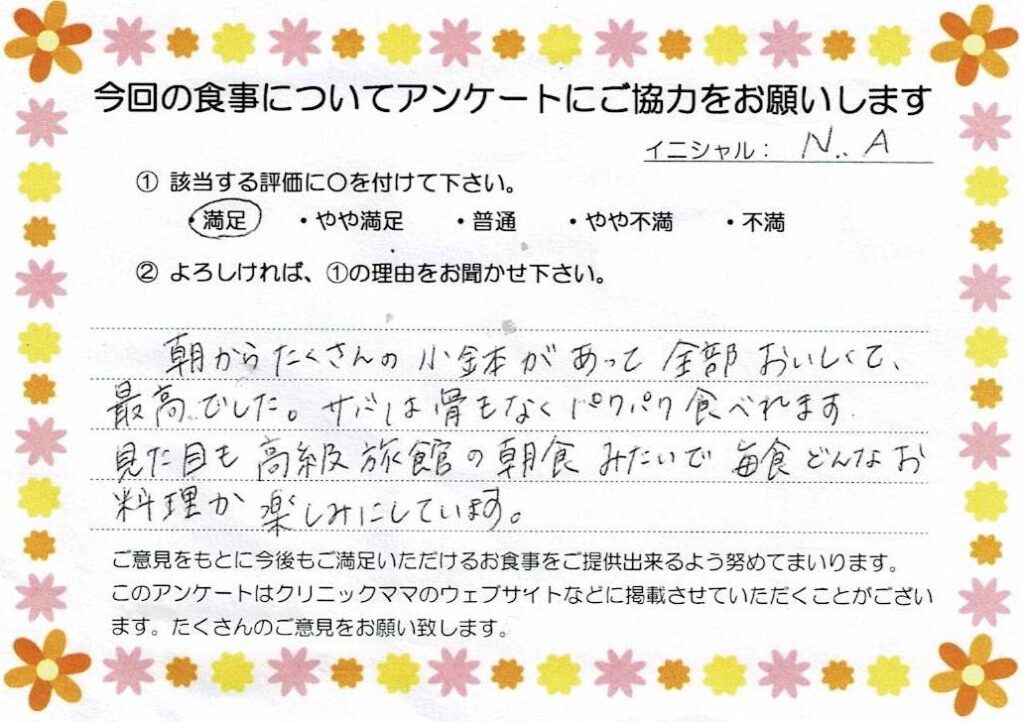 今回の食事についてアンケートにご協力をお願いします
イニシャル： N.. A
① 該当する評価に〇を付けて下さい。
・満足 ・やや満足 ・普通 ・やや不満 ・不満
② よろしければ、①の理由をお聞かせ下さい。
朝からたくさんの小鉢があって全部おいしくて、
最高でした。サバは骨もなくパクパク食べれます
見た目も高級旅館の朝食みたいで毎食どんなお
料理か楽しみにしています。
ご意見をもとに今後もご満足いただけるお食事をご提供出来るよう努めてまいります。
このアンケートはクリニックママのウェブサイトなどに掲載させていただくことがござい
ます。たくさんのご意見をお願い致します。